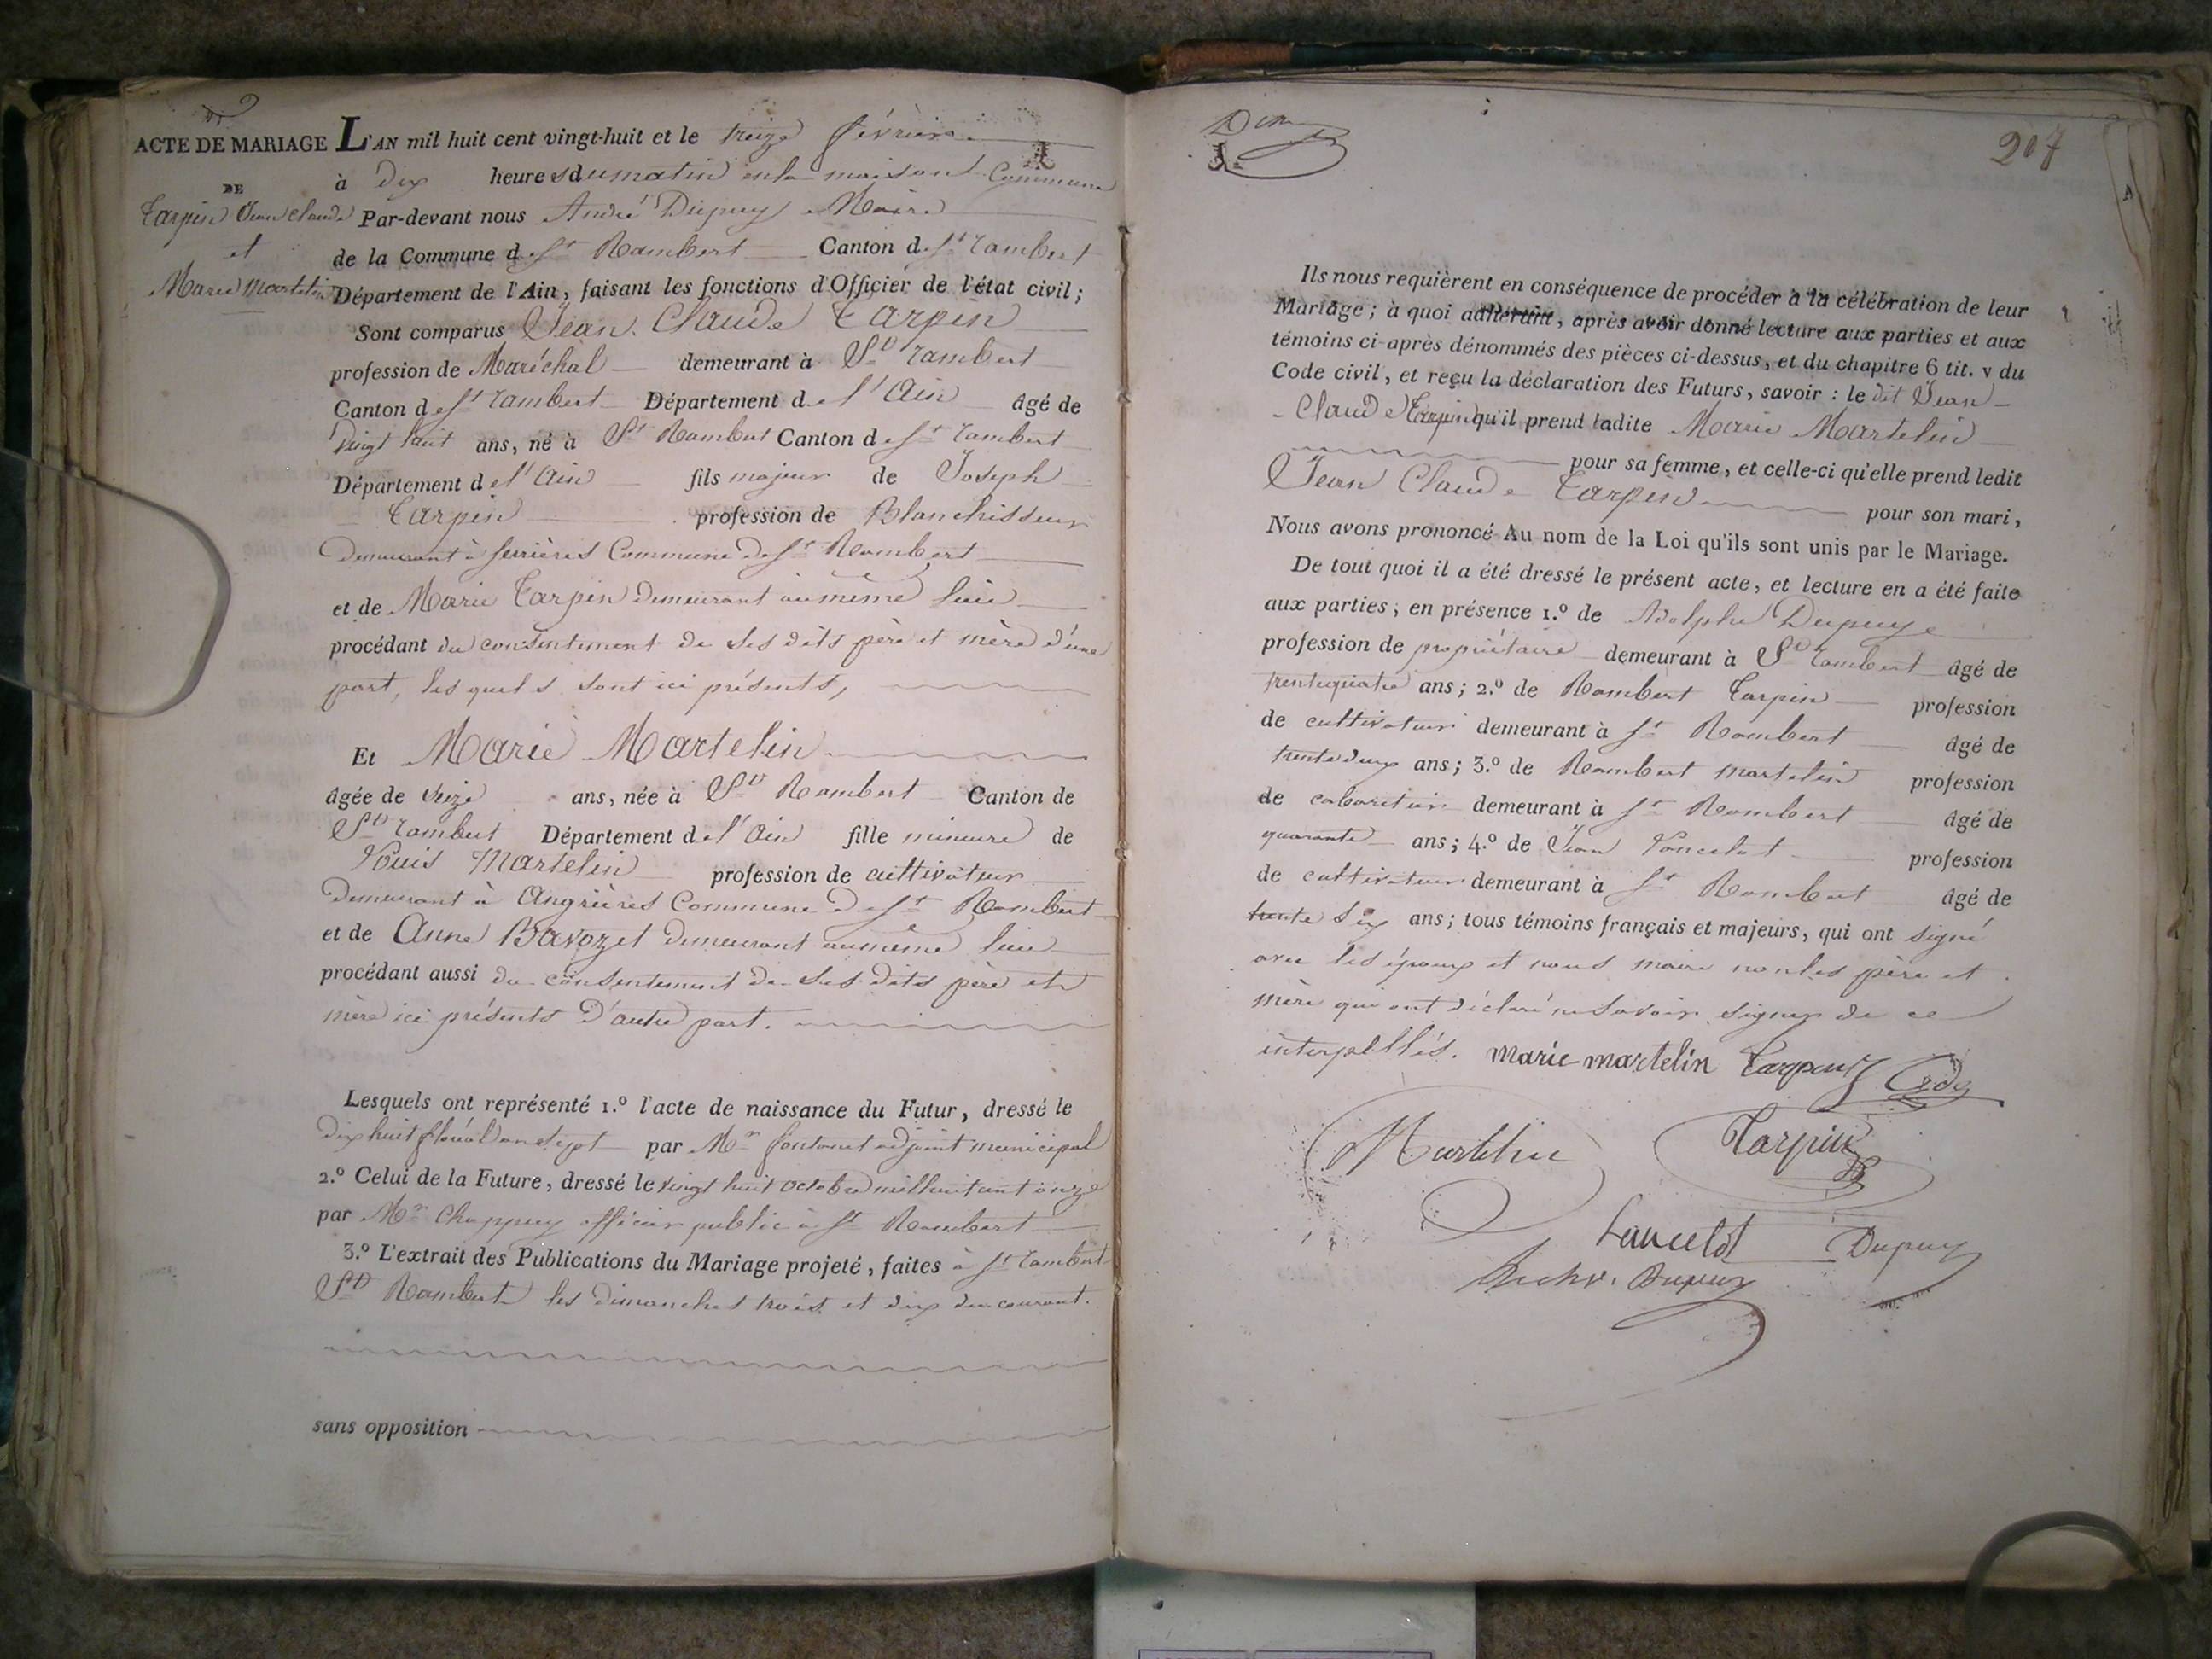 ACTE DE MARIAGE L'AN mil huit cent vingt-huit et le treize février
DE à dix heures du matin en la maison Commune
Tarpin Jean Claude Par-devant nous André Dupuy Maire
et de la Commune de St Rambert Canton de St rambert
Marie Martelin Département de l'Ain, faisant les fonctions d'Officier de l'état civil;
Sont comparus Jean Claude Tarpin
profession de Maréchal demeurant à St rambert
Canton de St rambert Département de l'Ain âgé de
Vingt huit ans, né à St Rambert Canton de St rambert
Département de l'Ain fils majeur de Joseph
Tarpin profession de Blanchisseur
Demeurant à serrières Commune de St Rambert
et de Marie Tarpin demeurant au même lieu
procédant du consentement de ses dits père et mère d'une
part, lesquels sont ici présents,
Et Marie Martelin
âgée de seize ans, née à St Rambert Canton de
St rambert Département de l'Ain fille mineure de
Louis Martelin profession de cultivateur
Demeurant à Angrières Commune de St Rambert
et de Anne Bavozet demeurant au même lieu
procédant aussi du consentement de ses dits père et
mère ici présents d'autre part.
Lesquels ont représenté 1.º l'acte de naissance du Futur, dressé le
Dix huit floréal an sept par Mr fontanet adjoint municipal
2.º Celui de la Future, dressé le vingt huit octobre mil huit cent onze
par Mr Chappuy officier public à St Rambert
3.º L'extrait des Publications du Mariage projeté, faites à St rambert
St Rambert les dimanches trois et dix du courant.
sans opposition
207
Ils nous requièrent en conséquence de procéder à la célébration de leur
Mariage; à quoi adhérant, après avoir donné lecture aux parties et aux
témoins ci-après dénommés des pièces ci-dessus, et du chapitre 6 tit. v du
Code civil, et reçu la déclaration des Futurs, savoir: le dit Jean
Claude Tarpin qu'il prend ladite Marie Martelin
pour sa femme, et celle-ci qu'elle prend ledit
Jean Claude Tarpin pour son mari,
Nous avons prononcé Au nom de la Loi qu'ils sont unis par le Mariage.
De tout quoi il a été dressé le présent acte, et lecture en a été faite
aux parties; en présence 1.º de Adolphe Dupuy
profession de propriétaire demeurant à St rambert âgé de
trentequatre ans; 2.º de Rambert Tarpin profession
de cultivateur demeurant à St Rambert âgé de
trente deux ans; 3.º de Rambert martelin profession
de cabaretier demeurant à St Rambert âgé de
quarante ans; 4.º de Jean Lancelot profession
de cultivateur demeurant à St Rambert âgé de
trente six ans; tous témoins français et majeurs, qui ont signé
avec les époux et nous maire non les père et
mère qui ont déclaré ne savoir signer de ce
interpellés. marie martelin Tarpin
Martelin Tarpin
Lancelot Dupuy
Dupuy